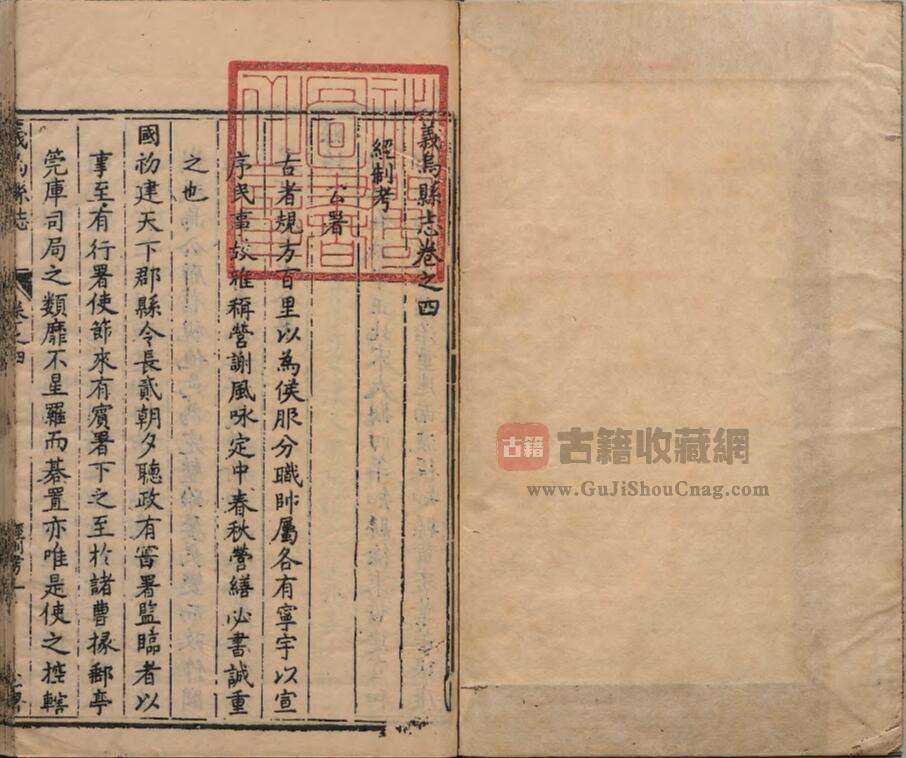 義烏縣志卷之四
經制考
公署
古者規方百里以為侯服分職帥屬各有寧宇以宣
序民事故雅稱營謝風咏定中春秋營繕必書誠重
之也
國初建天下郡縣令長貳朝夕聽政有廨署監臨者以
事至有行署使節來有賓署下之至於諸曹掾郵亭
筦庫司局之類靡不星羅而碁置亦唯是使之控轄
義烏縣志
卷之四
經制考
古籍
古籍收藏網
www.GuJiShouCnag.com